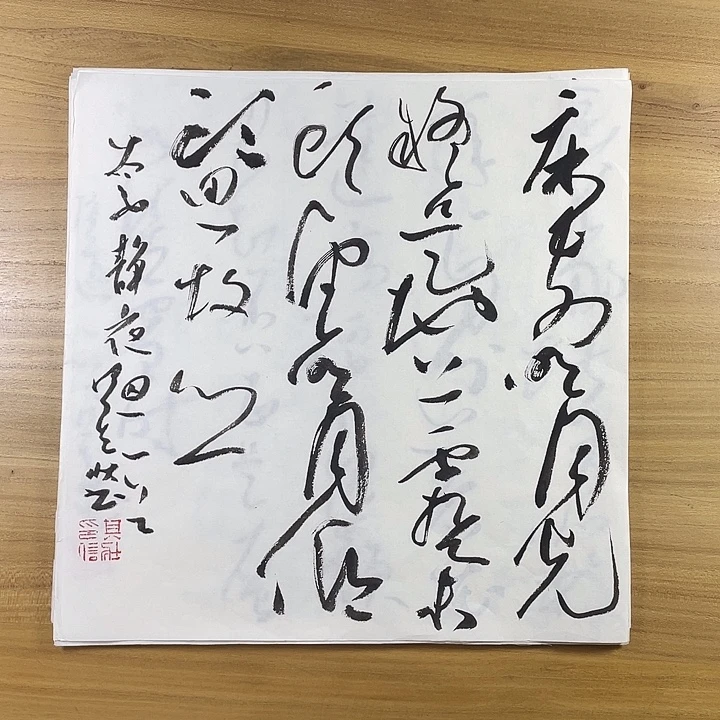 床前明月光
疑是地上霜举
头望明月低
头思故乡
太白静夜思